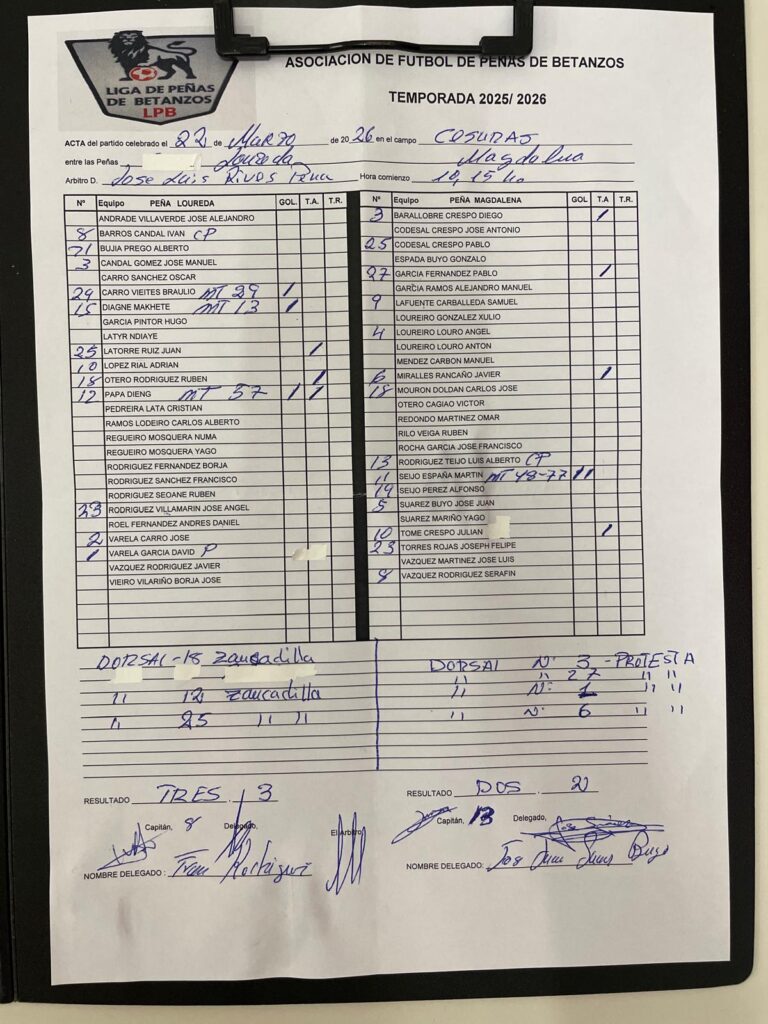 LIGA DE PEÑAS
DE BETANZOS
LPB
ASOCIACION DE FUTBOL DE PEÑAS DE BETANZOS
TEMPORADA 2025/ 2026
ACTA del partido celebrado el 22 de Marzo de 2026 en el campo COSUPAS
entre las Peñas Loureda Magdalena
Arbitro D. Jose Luis Rivos Pena Hora comienzo 10,15 ho
Nº Equipo PEÑA LOUREDA GOL. T.A. T.R.
ANDRADE VILLAVERDE JOSE ALEJANDRO
8 BARROS CANDAL IVAN CP
71 BUJIA PREGO ALBERTO
3 CANDAL GOMEZ JOSE MANUEL
CARRO SANCHEZ OSCAR
29 CARRO VIEITES BRAULIO MT 29 /
15 DIAGNE MAKHETE MT 13 /
GARCIA PINTOR HUGO
LATYR NDIAYE
25 LATORRE RUIZ JUAN /
10 LOPEZ RIAL ADRIAN
18 OTERO RODRIGUEZ RUBEN /
12 PAPA DIENG MT 57 / /
PEDREIRA LATA CRISTIAN
RAMOS LODEIRO CARLOS ALBERTO
REGUEIRO MOSQUERA NUMA
REGUEIRO MOSQUERA YAGO
RODRIGUEZ FERNANDEZ BORJA
RODRIGUEZ SANCHEZ FRANCISCO
RODRIGUEZ SEOANE RUBEN
23 RODRIGUEZ VILLAMARIN JOSE ANGEL
ROEL FERNANDEZ ANDRES DANIEL
2 VARELA CARRO JOSE
1 VARELA GARCIA DAVID P
VAZQUEZ RODRIGUEZ JAVIER
VIEIRO VILARIÑO BORJA JOSE
Nº Equipo PEÑA MAGDALENA GOL T.A T.R.
3 BARALLOBRE CRESPO DIEGO /
CODESAL CRESPO JOSE ANTONIO
25 CODESAL CRESPO PABLO
ESPADA BUYO GONZALO
27 GARCIA FERNANDEZ PABLO /
GARCIA RAMOS ALEJANDRO MANUEL
9 LAFUENTE CARBALLEDA SAMUEL
LOUREIRO GONZALEZ XULIO
4 LOUREIRO LOURO ANGEL
LOUREIRO LOURO ANTON
MENDEZ CARBON MANUEL
6 MIRALLES RANCAÑO JAVIER /
18 MOURON DOLDAN CARLOS JOSE
OTERO CAGIAO VICTOR
REDONDO MARTINEZ OMAR
RILO VEIGA RUBEN
ROCHA GARCIA JOSE FRANCISCO
13 RODRIGUEZ TEIJO LUIS ALBERTO CP
11 SEIJO ESPAÑA MARTIN MT 48-77 //
19 SEIJO PEREZ ALFONSO
5 SUAREZ BUYO JOSE JUAN
SUAREZ MARIÑO YAGO
10 TOME CRESPO JULIAN /
23 TORRES ROJAS JOSEPH FELIPE
VAZQUEZ MARTINEZ JOSE LUIS
8 VAZQUEZ RODRIGUEZ SERAFIN
DORSAL-18 Zancadilla
" 12 Zancadilla
" 25 " "
DORSAL Nº 3 - PROTESTA
" " 27 " "
" Nº 1 " "
" Nº 6 " "
RESULTADO TRES. 3
Capitán, 8 Delegado,
NOMBRE DELEGADO: Fran Rodriguez
El Arbitro
RESULTADO DOS. 2
Capitán, 13 Delegado,
NOMBRE DELEGADO: Jose Juan Buyo